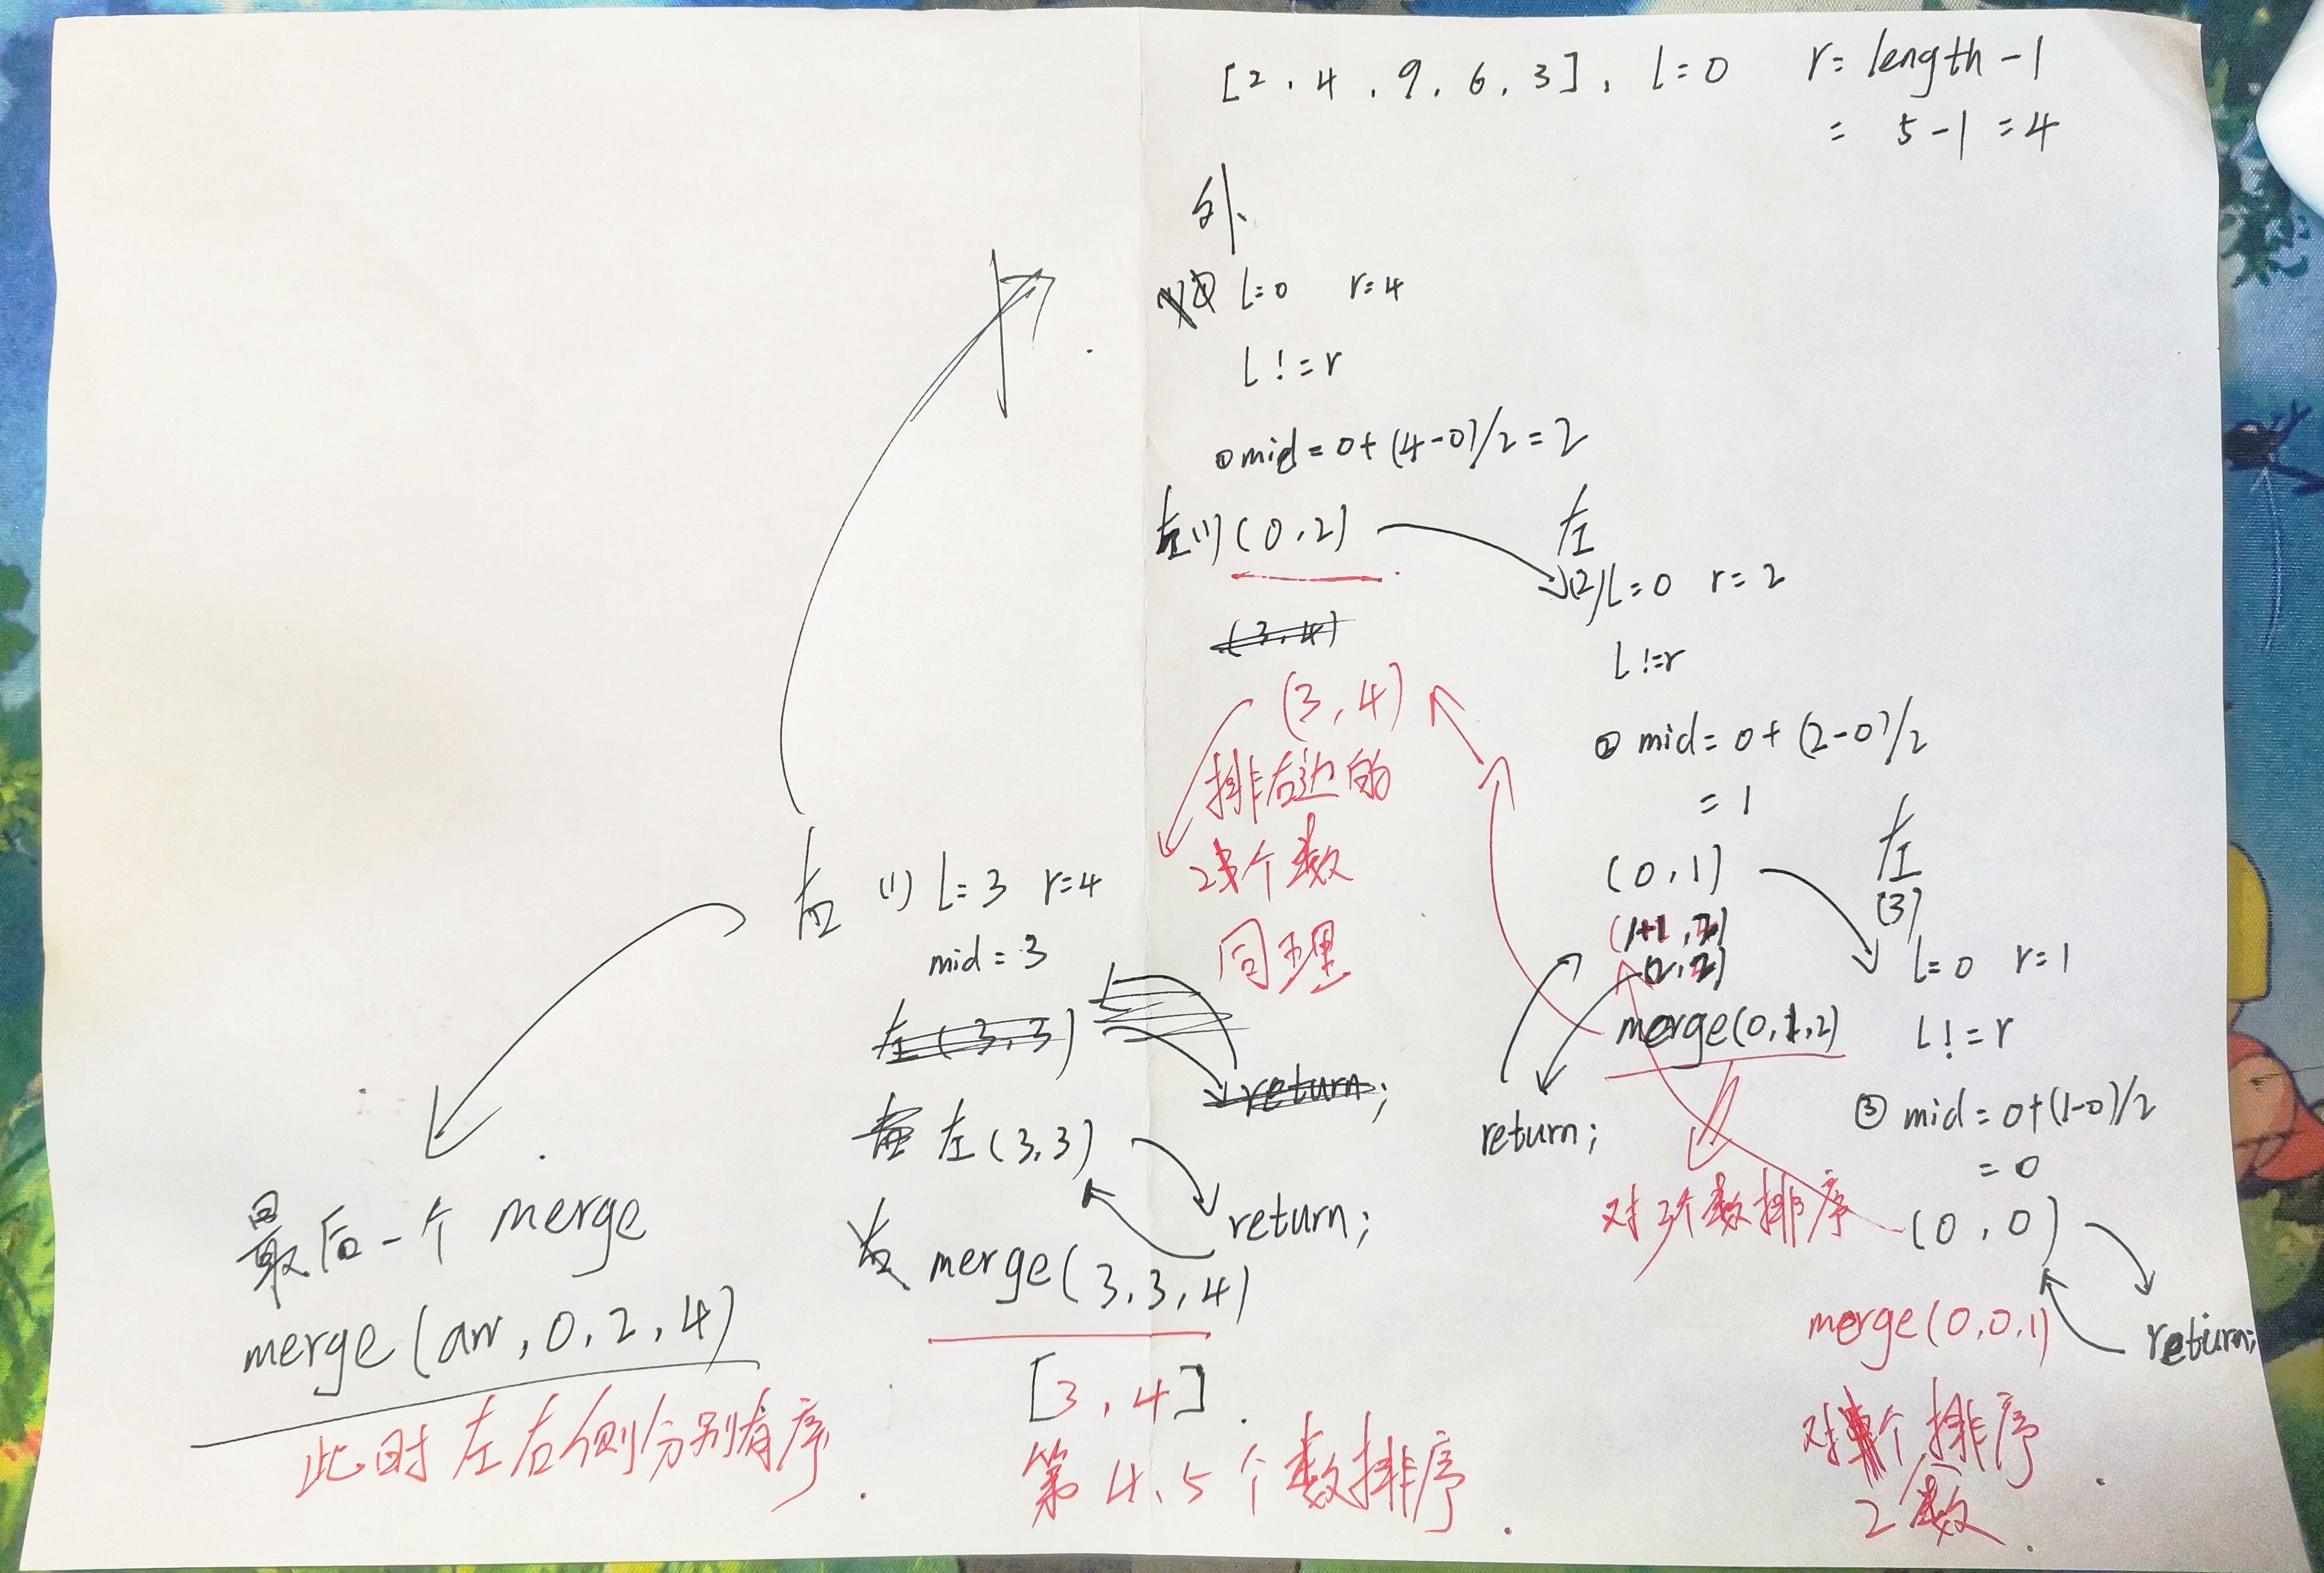 [2, 4, 9, 6, 3], l=0 r=length-1
= 5-1=4
外
l=0 r=4
l!=r
①mid=0+(4-0)/2=2
左(1)(0,2)
(3,4)
(3,4)
排右边的
2个数
同理
左
(2)l=0 r=2
l!=r
② mid=0+(2-0)/2
=1
(0,1)
(1+1,2)
(2,2)
merge(0,1,2)
return;
对3个数排序
左
(3)
l=0 r=1
l!=r
③ mid=0+(1-0)/2
=0
(0,0)
return;
merge(0,0,1)
对个排序
2数
右 (1) l=3 r=4
mid=3
左(3,3)
return;
左(3,3)
return;
右 merge(3,3,4)
[3,4]
第4、5个数排序
最后一个 merge
merge(arr,0,2,4)
此时左右侧分别有序